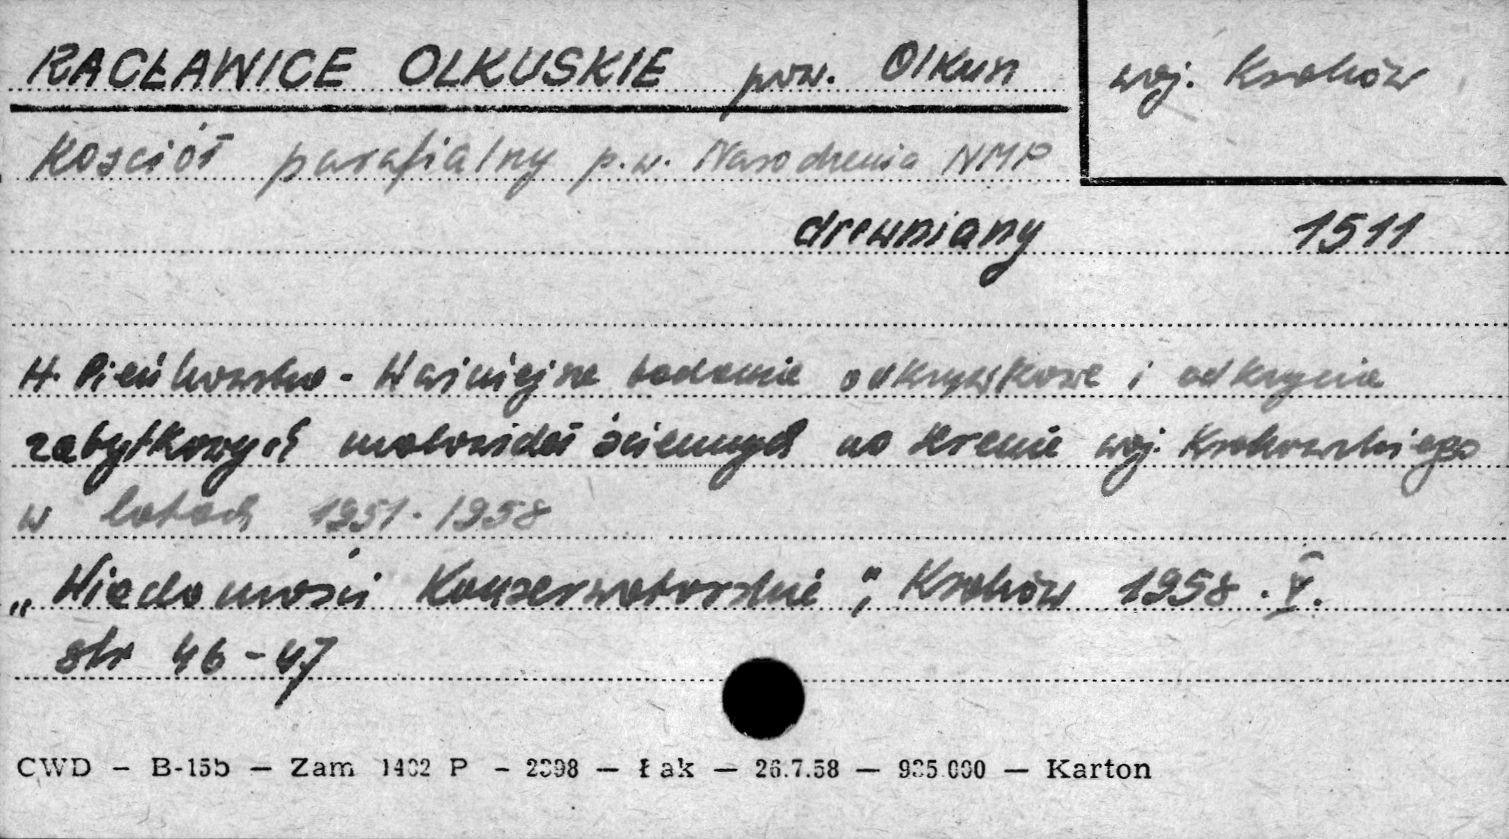 RACŁAWICE OLKUSKIE pow. Olkusz
woj. Kraków
Kościół parafialny p.w. Narodzenia NMP
drewniany 1511
H. Pieńkowska - Ważniejsze badania odkrywkowe i odkrycia
zabytkowych malowideł ściennych na terenie woj. Krakowskiego
w latach 1951-1958
„Wiadomości Konserwatorskie", Kraków 1958. V.
str 46-47
CWD — B-15b — Zam 1402 P — 2398 — Łak — 26.7.58 — 935.000 — Karton